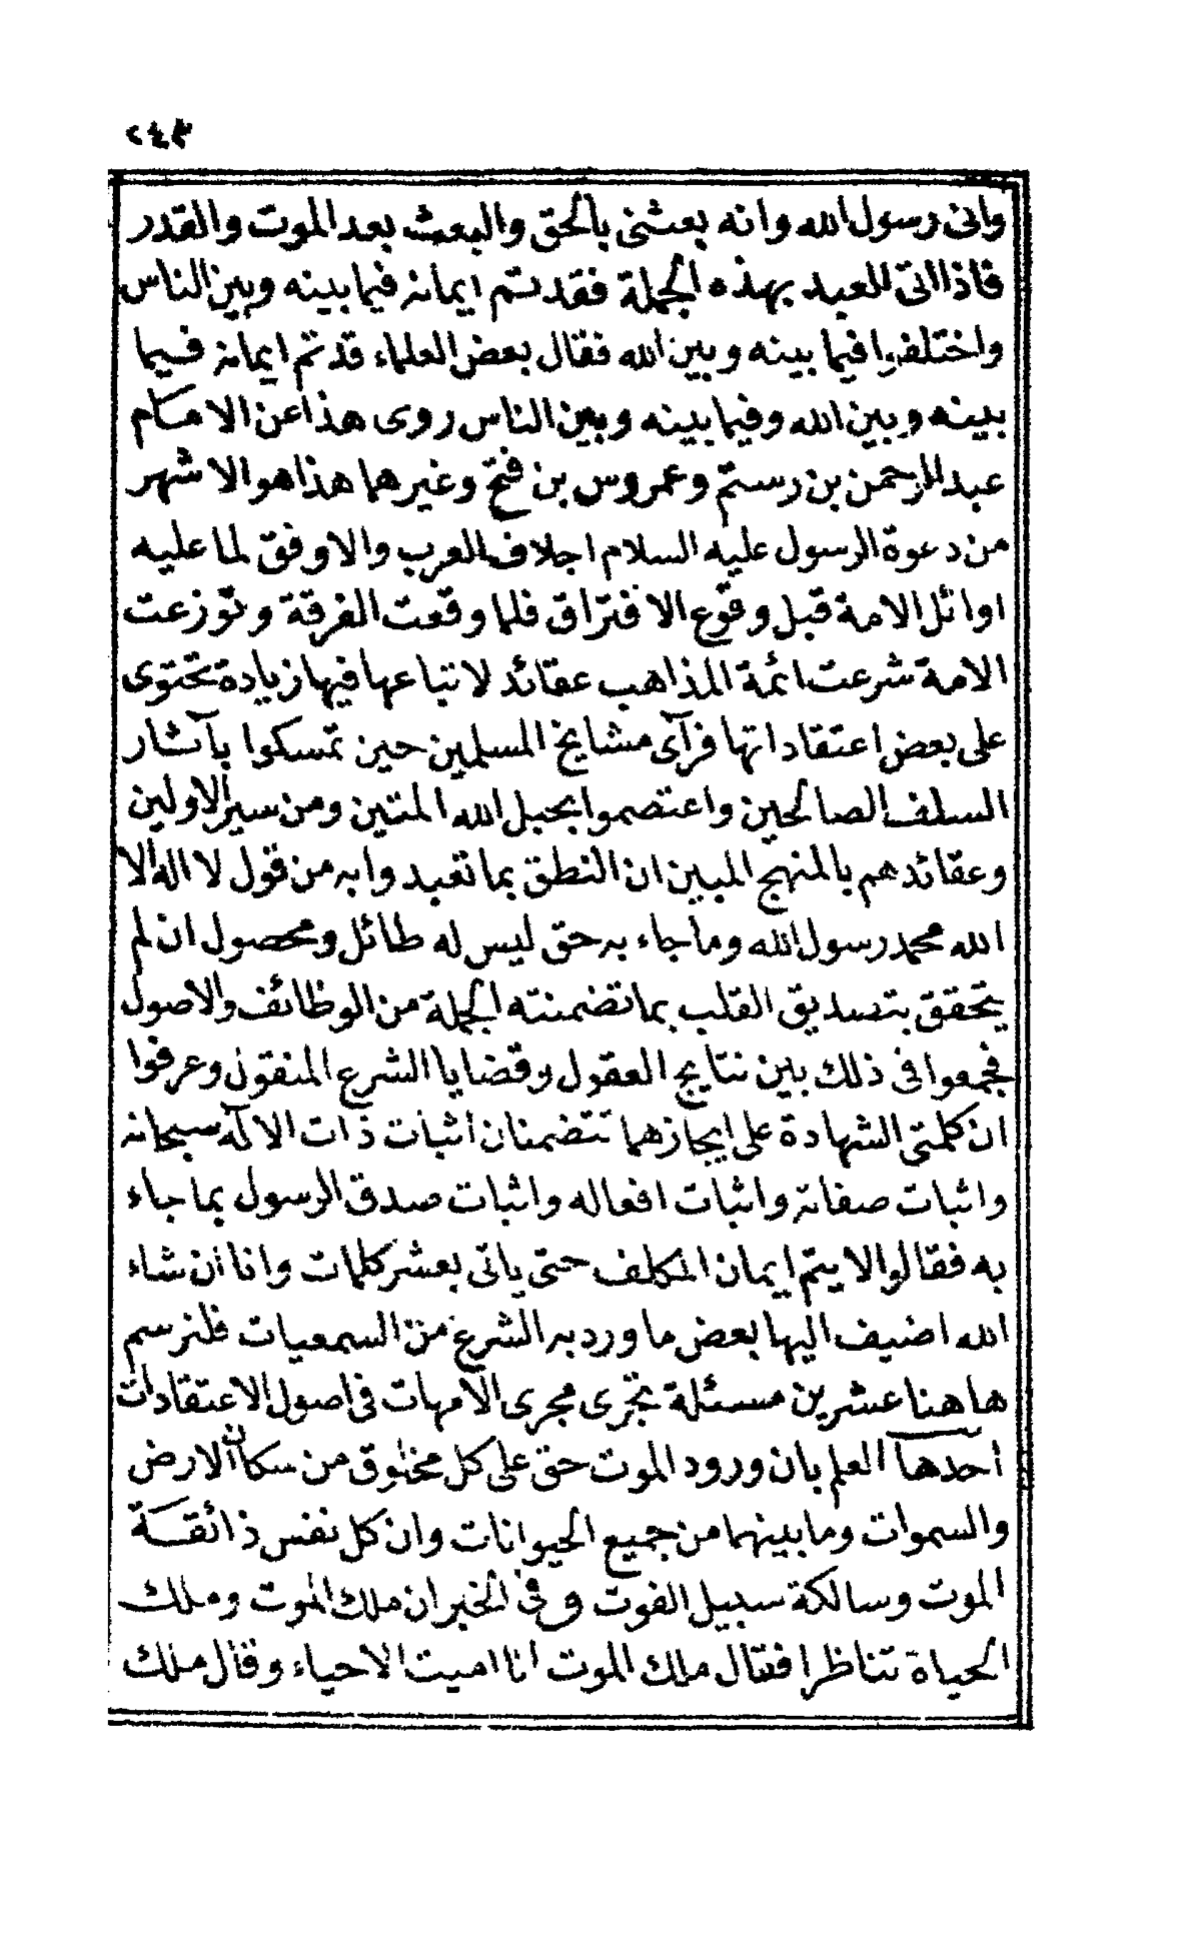 ٢٤٣
وانى رسول الله وانه بعثنى بالحق والبعث بعد الموت والقدر
فاذا اتى العبد بهذه الجملة فقد تم ايمانه فيما بينه وبين الناس
واختلفوا فيما بينه وبين الله فقال بعض العلماء قد تم ايمانه فيما
بينه وبين الله وفيما بينه وبين الناس روى هذا عن الامام
عبد الرحمن بن رستم وعمروس بن فتح وغيرهما هذا هو الاشهر
من دعوة الرسول عليه السلام اجلاف العرب والاوفق لما عليه
اوائل الامة قبل وقوع الافتراق فلما وقعت الفرقة وتوزعت
الامة شرعت ائمة المذاهب عقائد لاتباعها فيها زيادة تحتوى
على بعض اعتقاداتها فرآى مشايخ المسلمين حين تمسكوا بآثار
السلف الصالحين واعتصموا بحبل الله المتين ومن سير الاولين
وعقائدهم بالمنهج المبين ان النطق بما تعبدوا به من قول لا اله الا
الله محمد رسول الله وما جاء به حق ليس له طائل ومحصول ان لم
يتحقق بتصديق القلب بما تضمنته الجملة من الوظائف والاصول
فجمعوا فى ذلك بين نتايج العقول وقضايا الشرع المنقول وعرفوا
ان كلمتى الشهادة على ايجازهما تتضمنان اثبات ذات الاله سبحانه
واثبات صفاته واثبات افعاله واثبات صدق الرسول بما جاء
به فقالوا لا يتم ايمان المكلف حتى ياتى بعشر كلمات وانا ان شاء
الله اضيف اليها بعض ما ورد به الشرع من السمعيات فلنرسم
هاهنا عشرين مسئلة تجرى مجرى الامهات فى اصول الاعتقادات
احدها العلم بان ورود الموت حق على كل مخلوق من سكان الارض
والسموات وما بينهما من جميع الحيوانات وان كل نفس ذائقة
الموت وسالكة سبيل الفوت وفى الخبر ان ملك الموت وملك
الحياة تناظرا فقال ملك الموت انا اميت الاحياء وقال ملك